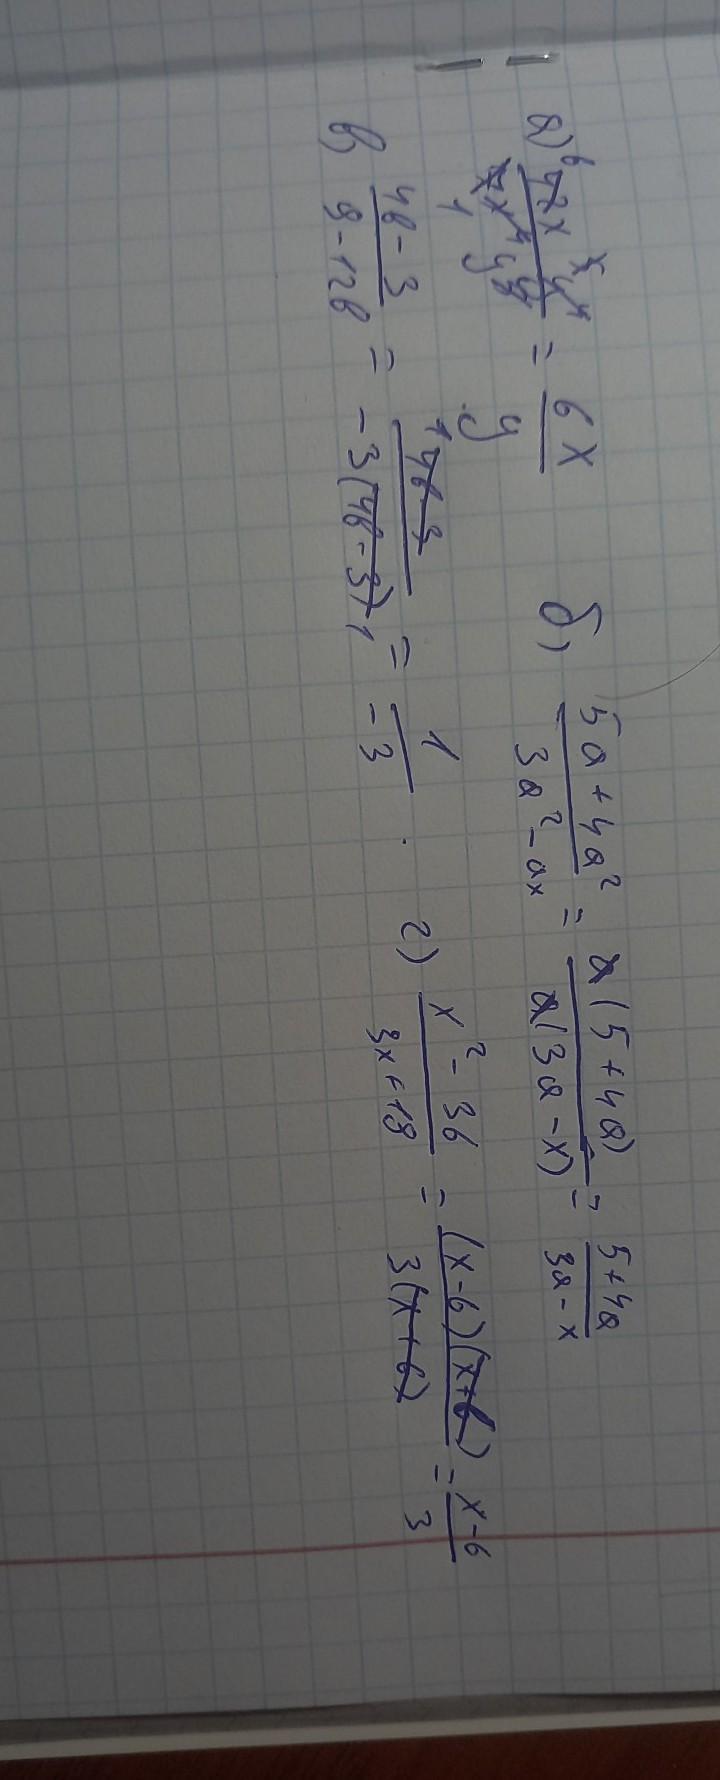 а) 42x⁵y⁴ / 7x⁴y⁵ = 6x / y б) 5a + 4a² / 3a² - ax = a(5 + 4a) / a(3a - x) = 5 + 4a / 3a - x
в) 4b - 3 / 9 - 12b = 4b - 3 / -3(4b - 3) = 1 / -3 г) x² - 36 / 3x + 18 = (x - 6)(x + 6) / 3(x + 6) = x - 6 / 3